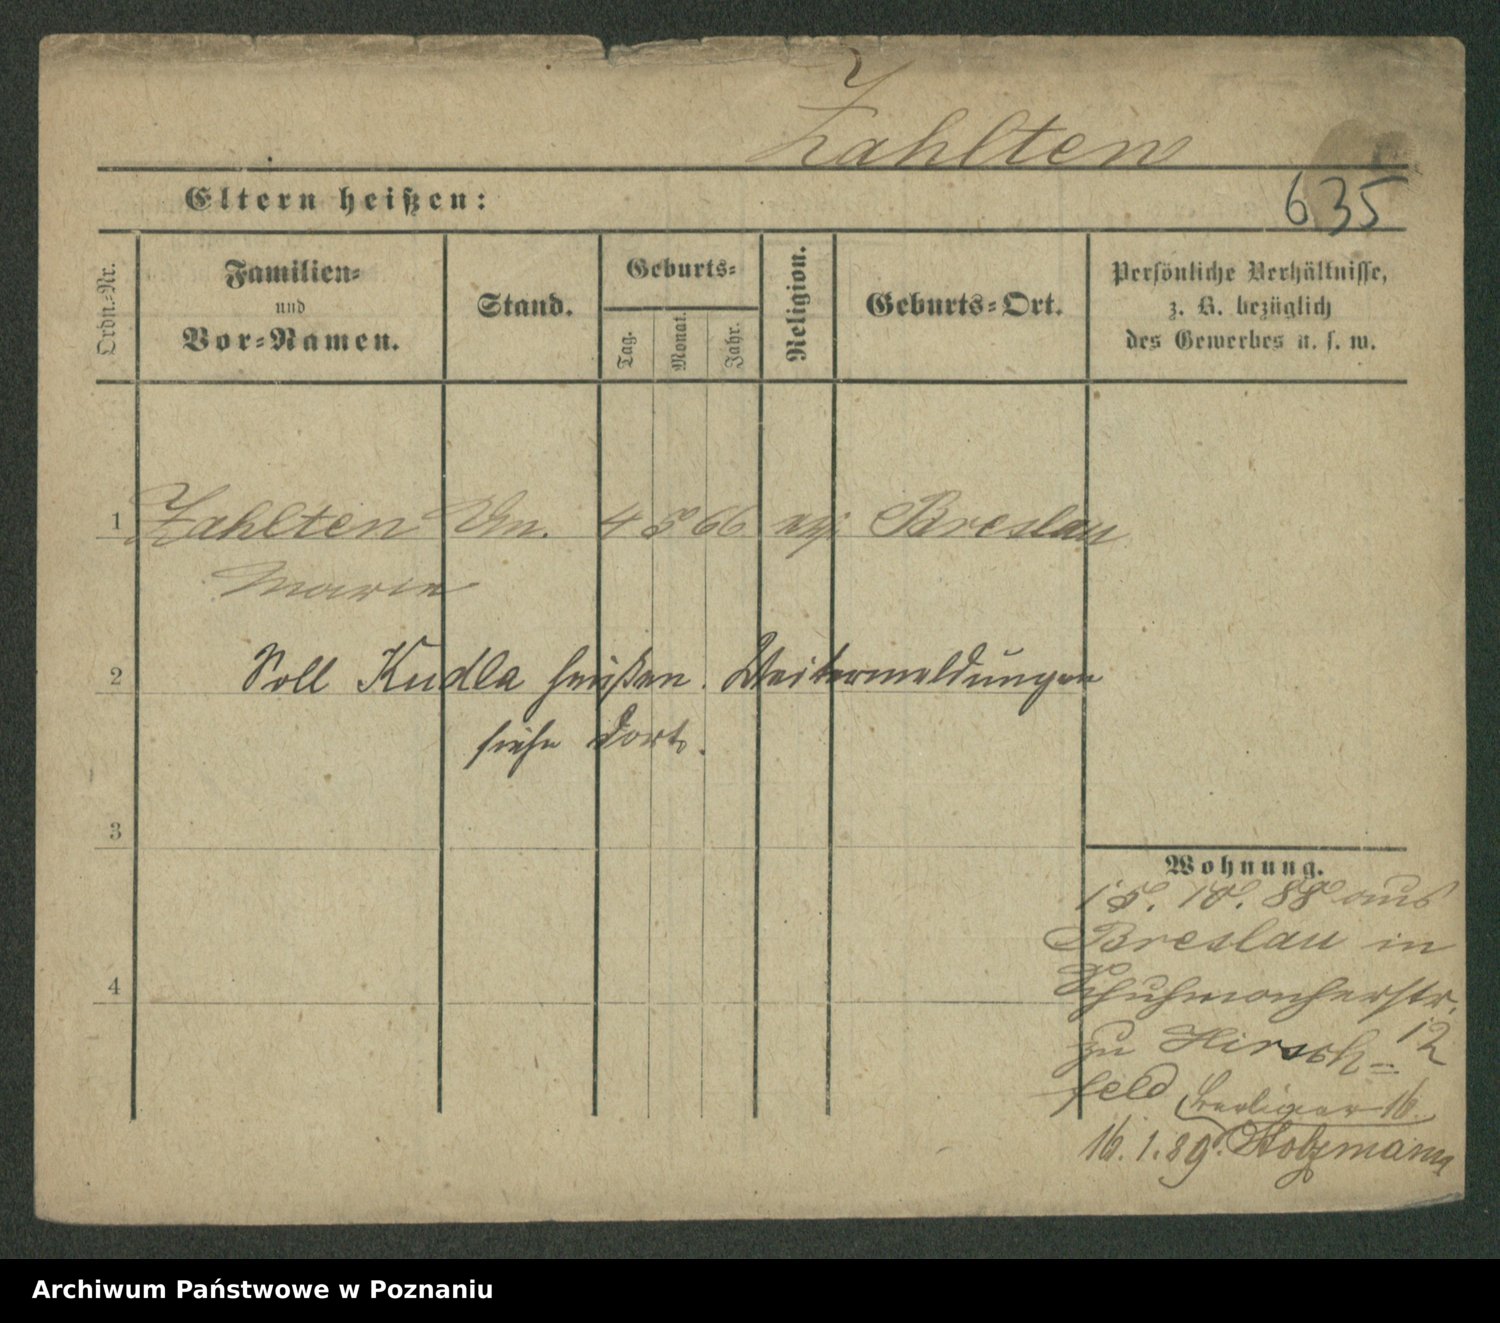 Zahlten
Eltern heißen:
635
Ordn.-Nr.
Familien-
und
Vor-Namen.
Stand.
Geburts-
Tag.
Monat.
Jahr.
Religion.
Geburts-Ort.
Persönliche Verhältnisse,
z. B. bezüglich
des Gewerbes u. s. w.
1 Zahlten 4 5 66 Breslau
Marie
2 Soll Kudla heißen. Weitermeldungen
siehe dort.
3
4
Wohnung.
15. 10. 88 aus
Breslau in
Schuhmacherstr.
12
zu Hirsch-
feld
16.
16.1.89.
Archiwum Państwowe w Poznaniu